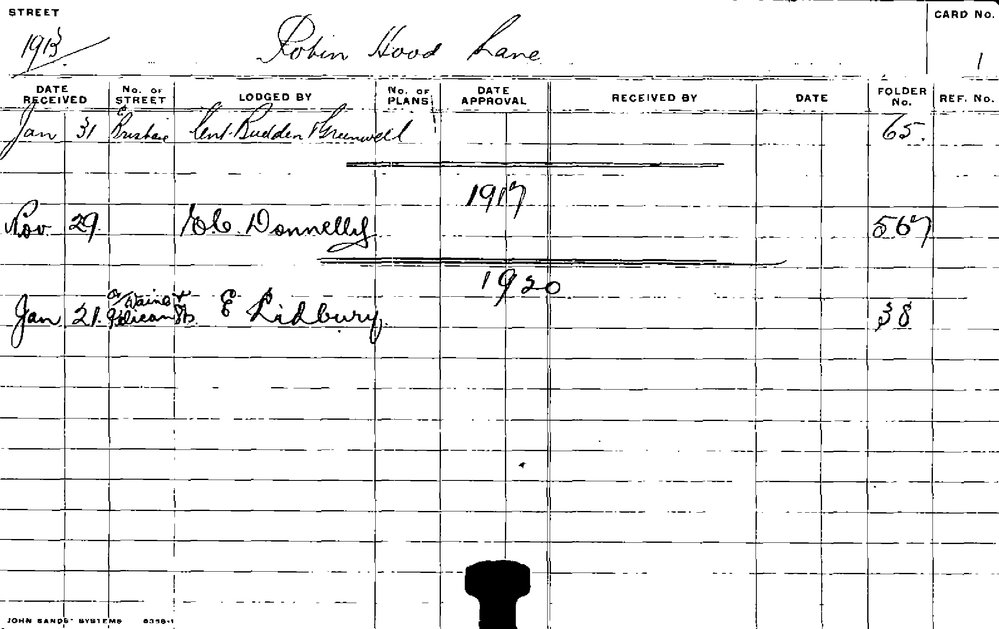 STREET
CARD No.
1913
Robin Hood Lane
1
DATE RECEIVED No. OF STREET LODGED BY No. OF PLANS DATE APPROVAL RECEIVED BY DATE FOLDER No. REF. No.
Jan 31 Kent Budden & Greenwell 65.
1917
Nov 29. Donnelly 567
1920
Jan 21. Pelican Sts E Lidbury 38
JOHN SANDS' SYSTEMS